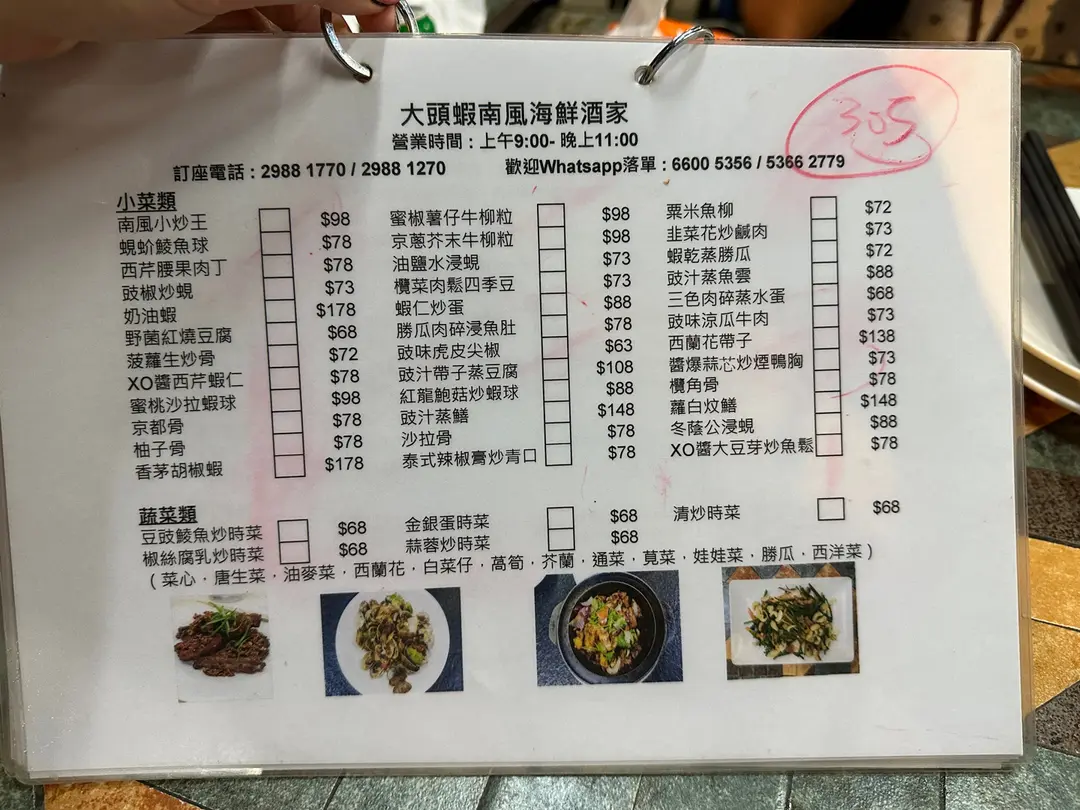 大頭蝦南風海鮮酒家
營業時間：上午9:00- 晚上11:00
305
訂座電話：2988 1770 / 2988 1270 歡迎Whatsapp落單：6600 5356 / 5366 2779
小菜類
南風小炒王 $98 蜜椒薯仔牛柳粒 $98 粟米魚柳 $72
蜆蚧鯪魚球 $78 京蔥芥末牛柳粒 $98 韭菜花炒鹹肉 $73
西芹腰果肉丁 $78 油鹽水浸蜆 $73 蝦乾蒸勝瓜 $72
豉椒炒蜆 $73 欖菜肉鬆四季豆 $73 豉汁蒸魚雲 $88
奶油蝦 $178 蝦仁炒蛋 $88 三色肉碎蒸水蛋 $68
野菌紅燒豆腐 $68 勝瓜肉碎浸魚肚 $78 豉味涼瓜牛肉 $73
菠蘿生炒骨 $72 豉味虎皮尖椒 $63 西蘭花帶子 $138
XO醬西芹蝦仁 $78 豉汁帶子蒸豆腐 $108 醬爆蒜芯炒煙鴨胸 $73
蜜桃沙拉蝦球 $98 紅龍鮑菇炒蝦球 $88 欖角骨 $78
京都骨 $78 豉汁蒸鱔 $148 蘿白炆鱔 $148
柚子骨 $78 沙拉骨 $78 冬蔭公浸蜆 $88
香茅胡椒蝦 $178 泰式辣椒膏炒青口 $78 XO醬大豆芽炒魚鬆 $78
蔬菜類
豆豉鯪魚炒時菜 $68 金銀蛋時菜 $68 清炒時菜 $68
椒絲腐乳炒時菜 $68 蒜蓉炒時菜 $68
（菜心﹒唐生菜﹒油麥菜﹒西蘭花﹒白菜仔﹒萵筍﹒芥蘭﹒通菜﹒莧菜﹒娃娃菜﹒勝瓜﹒西洋菜）